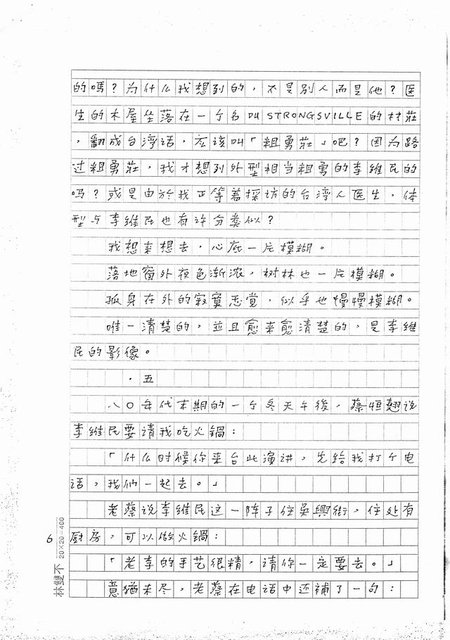 的嗎?为什么我想到的,不是别人而是他?医
生的木屋坐落在一个名叫STRONGSVILLE的村莊
,翻成台湾话,应该叫「粗勇莊」吧?因为路
过粗勇莊,我才想到外型相当粗勇的李维民的
嗎?或是由於我正等着採访的台湾人医生,体
型与李维民也有许分类似?
我想来想去,心底一片模糊。
落地窗外夜色渐浓,树林也一片模糊。
孤身在外的寂寞感觉,似乎也慢慢模糊。
唯一清楚的,並且愈来愈清楚的,是李维
民的影像。
·五
八〇年代末期的一个冬天午後,蔡恒翘说
李维民要请我吃火鍋:
「什么时候你来台北演讲,先给我打个电
话,我们一起去。」
老蔡说李维民这一阵子住吴興街,住处有
廚房,可以做火鍋:
「老李的手艺很精,请你一定要去。」
意猶未尽,老蔡在电话中还補了一句:
6
20×20=400
林雙不